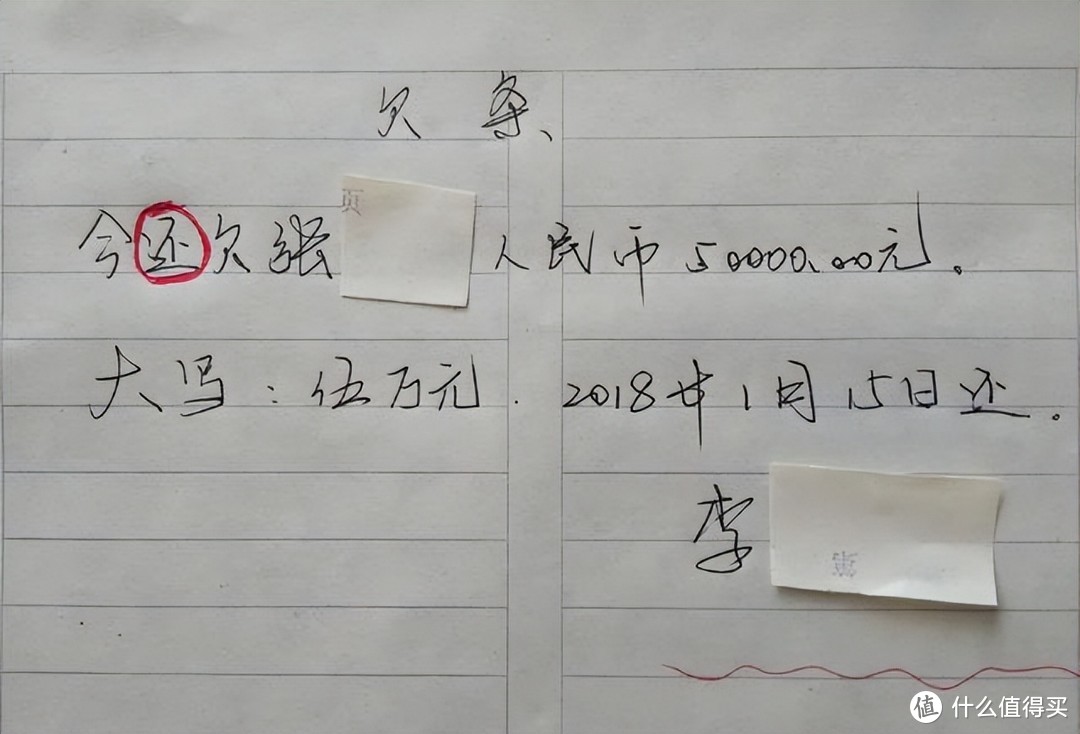 欠条
今还欠张 人民币50000.00元。
大写：伍万元.2018年1月15日还。
李
页
第
值 什么值得买